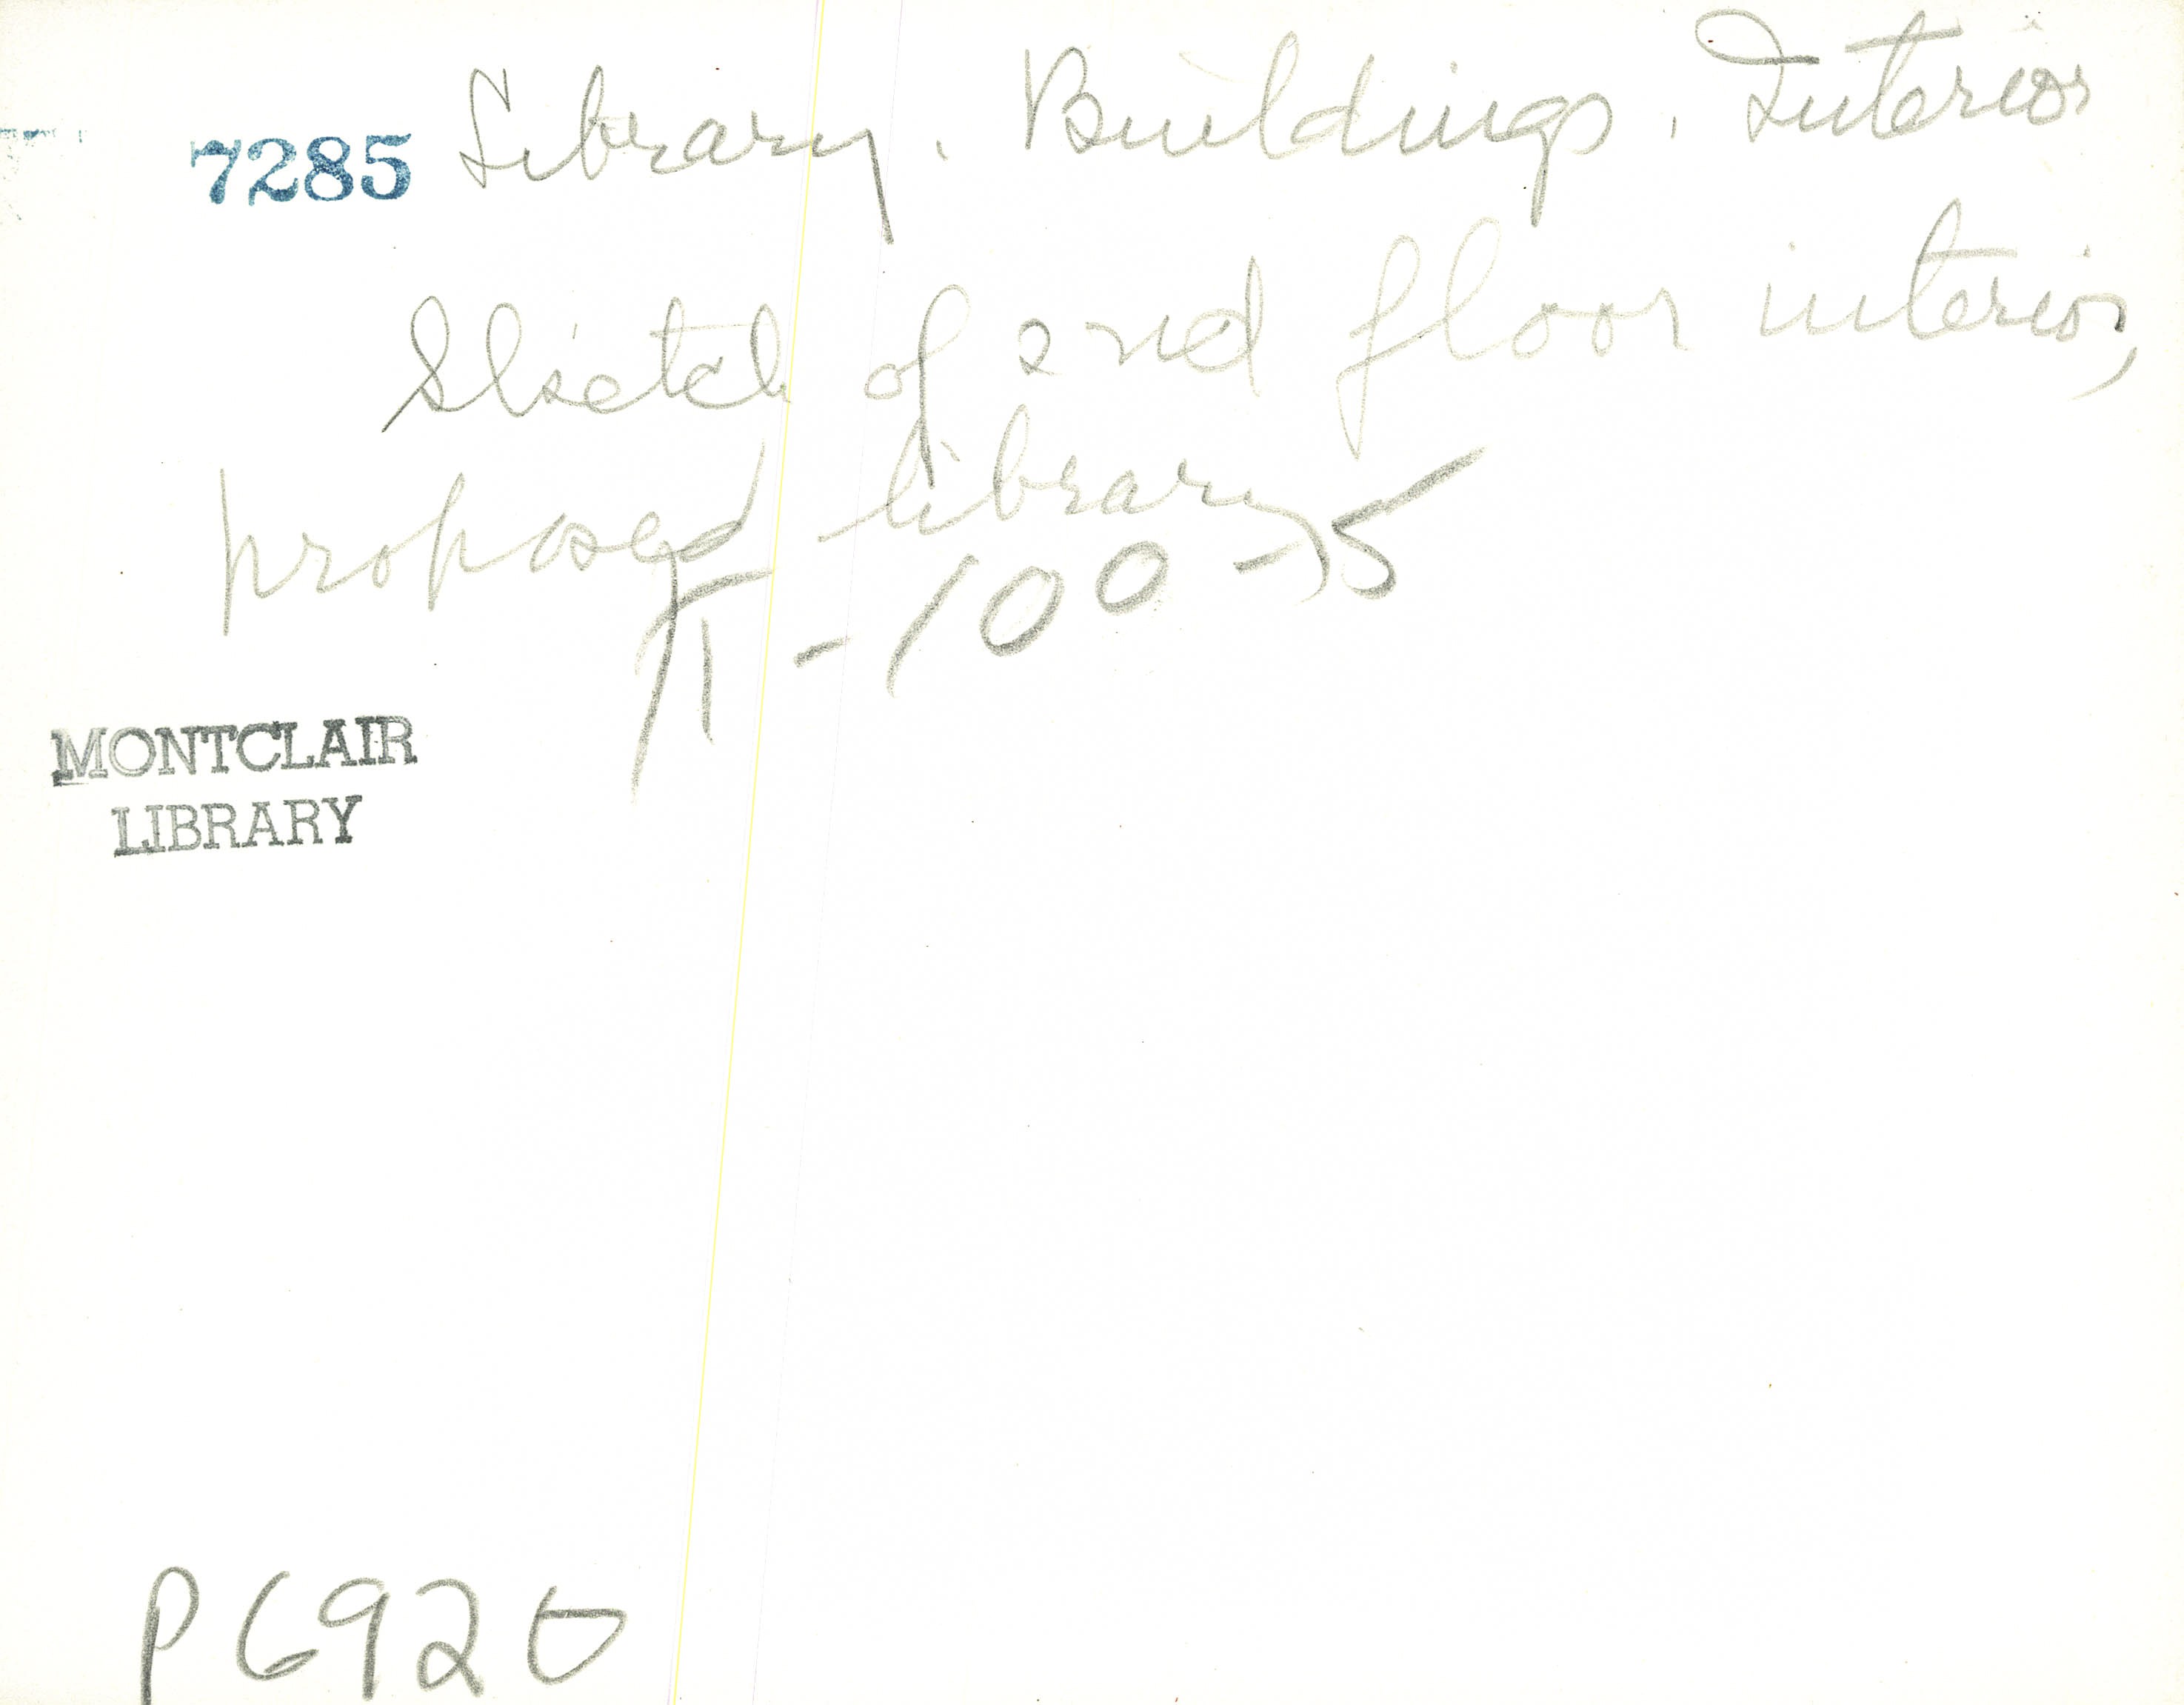 7285 Library. Buildings. Interior
Sketch of 2nd floor interior,
proposed library
-100-5
MONTCLAIR
LIBRARY
P6920